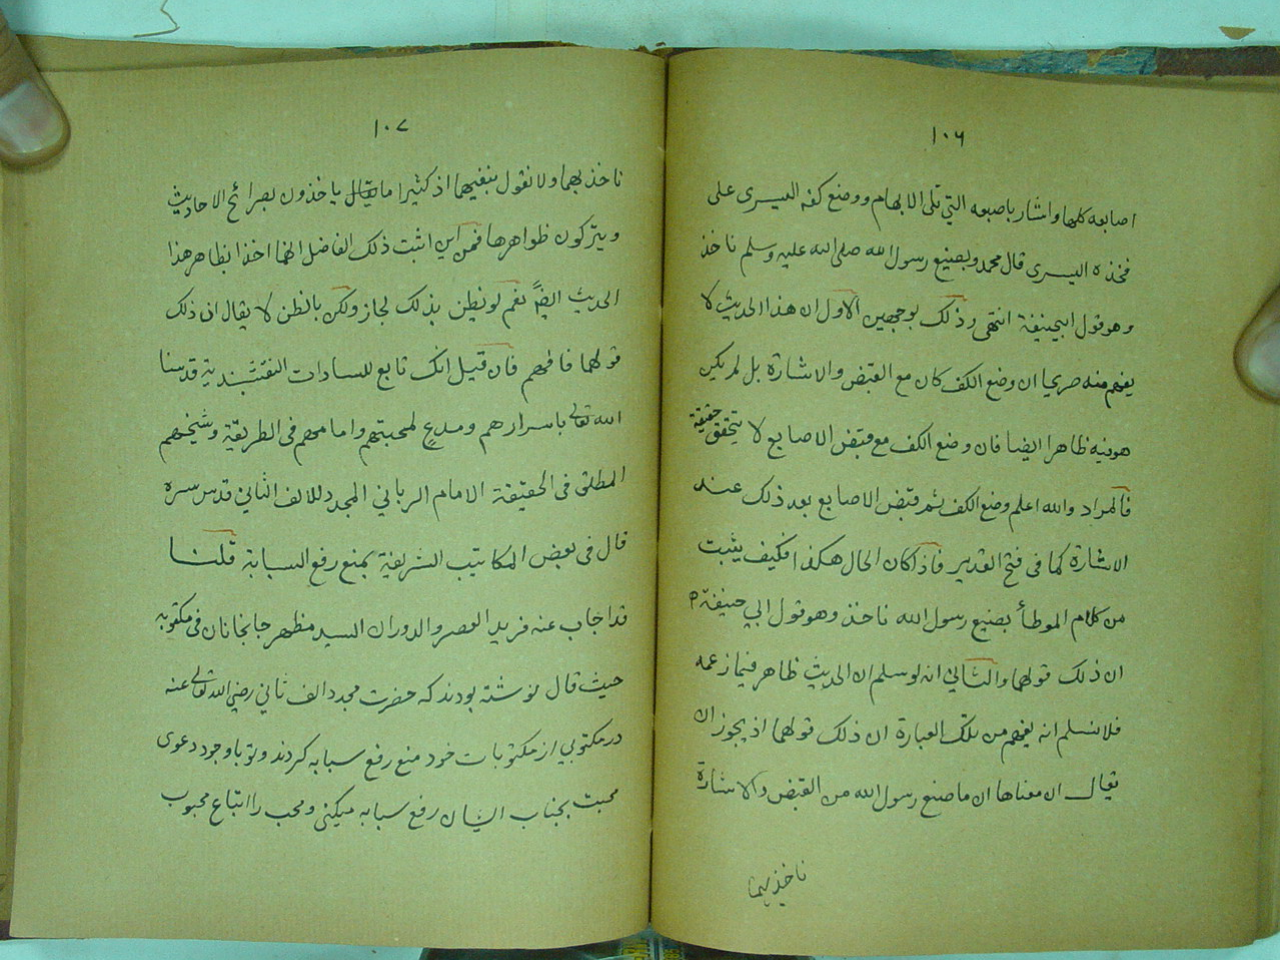 ١٠٦
اصابعه كلها واشار باصبعه التي تلى الابهام ووضع كفه اليسرى على
فخذه اليسرى قال محمد وبصنيع رسول الله صلى الله عليه وسلم ناخذ
وهو قول ابيحنيفة انتهى وذلك بوجهين الاول ان هذا الحديث لا
يفهم منه صريحا ان وضع الكف كان مع القبض والاشارة بل لم يكن
هو فيه ظاهرا ايضا فان وضع الكف مع قبض الاصابع لا يتحقق حقيقة
فالمراد والله اعلم وضع الكف ثم قبض الاصابع بعد ذلك عند
الاشارة كما فى فتح القدير فاذا كان الحال هكذا فكيف يثبت
من كلام الموطأ بصنيع رسول الله ناخذ وهو قول ابي حنيفة
ان ذلك قولهما والثاني انه لو سلم ان الحديث ظاهر فيما زعمه
فلا نسلم انه يفهم من تلك العبارة ان ذلك قولهما اذ يجوز ان
يقال ان معناها ان ما صنع رسول الله من القبض والاشارة
ناخذ بهما
١٠٧
ناخذ بهما ولا نقول بنفيهما اذ كثيرا ما يقال ياخذون بصرائح الاحاديث
ويتركون ظواهرها فمن اين اثبت ذلك الفاضل انهما اخذا بظاهر هذا
الحديث ايضا نعم لو نظن بذلك لجاز ولكن بالظن لا يقال ان ذلك
قولهما فافهم فان قيل انك تابع للسادات النقشبندية قدسنا
الله تعالى باسرارهم ومدع لمحبتهم وامامهم فى الطريقة وشيخهم
المطلق فى الحقيقة الامام الرباني المجدد للالف الثاني قدس سره
قال فى بعض المكاتيب الشريفة بمنع رفع السبابة قلنا
قد اجاب عنه فريد العصر والدوران السيد مظهر جانجانان فى مكتوبه
حيث قال نوشته بودند كه حضرت مجدد الف ثاني رضي الله تعالى عنه
در مكتوبي از مكتوبات خود منع رفع سبابه كردند وتو با وجود دعوى
محبت بجناب ايشان رفع سبابه ميكنى ومحب را اتباع محبوب